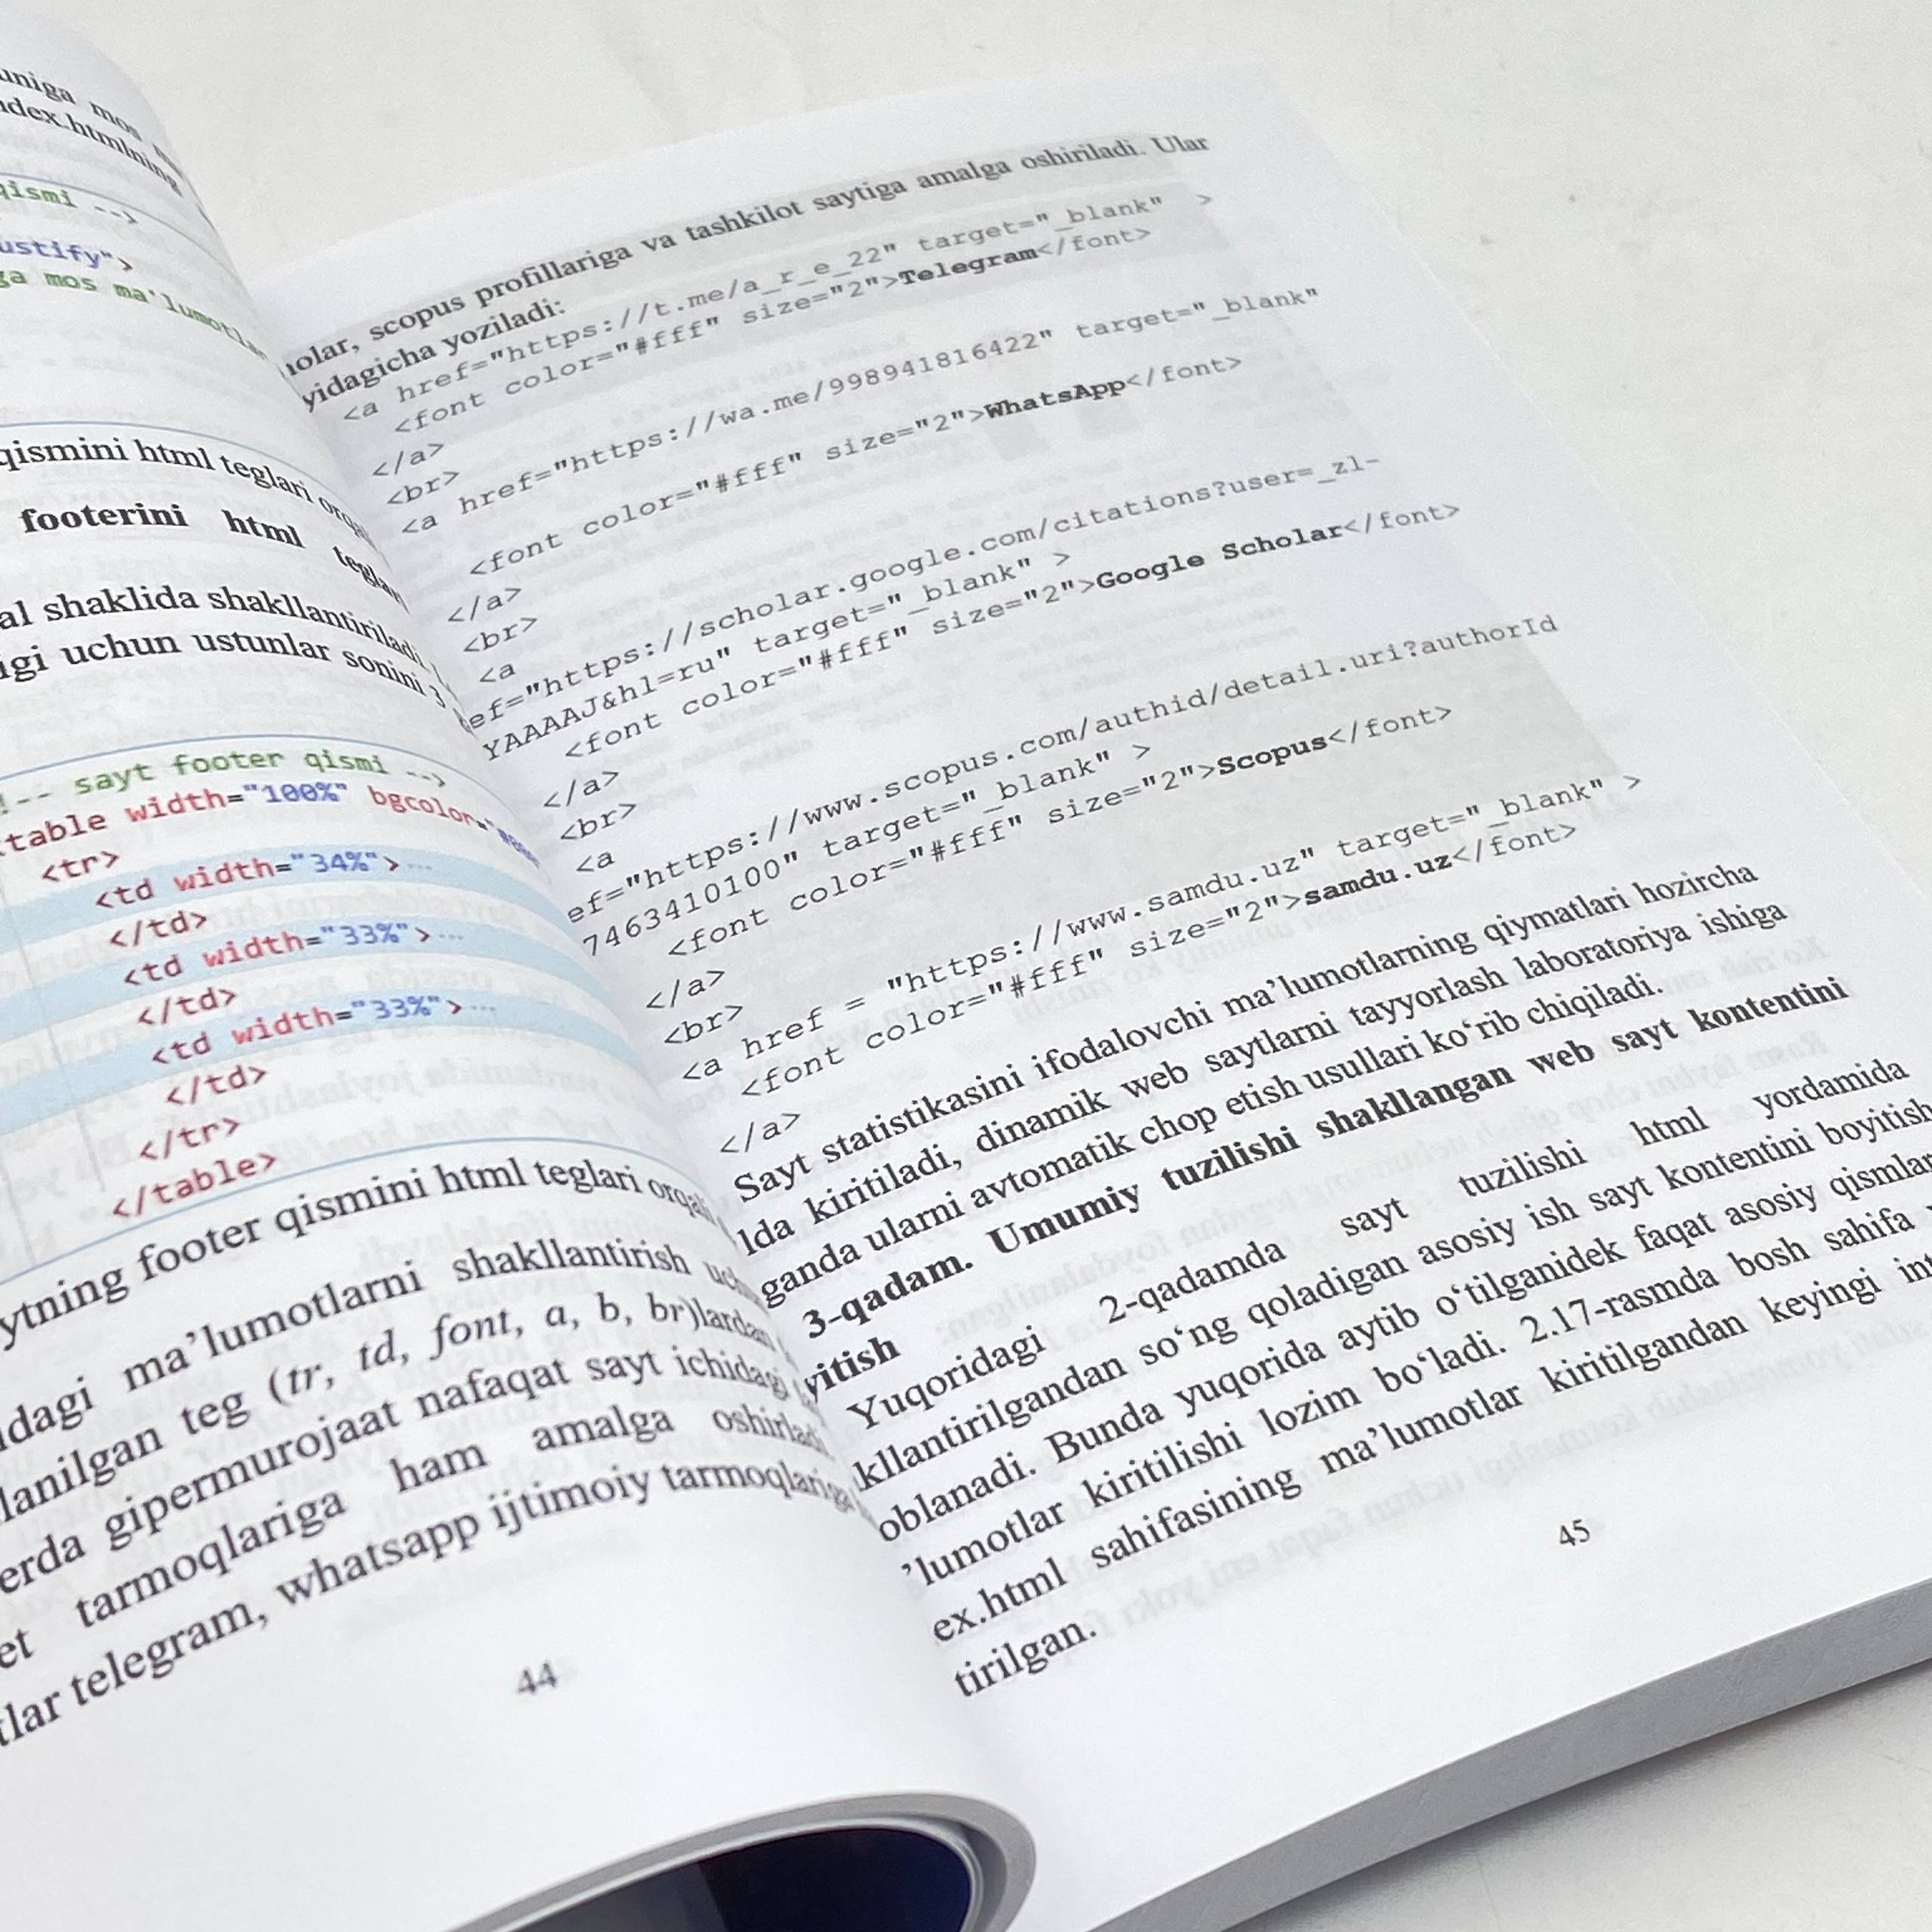 uniga mos
index.htmlning
qismi -->
justify">
ga mos ma'lumotlar
qismini html teglari orqali
footerini html teglari
al shaklida shakllantiriladi.
igi uchun ustunlar sonini 3
!-- sayt footer qismi -->
<table width="100%" bgcolor="#
<tr>
<td width="34%">...
</td>
<td width="33%">...
</td>
<td width="33%">...
</td>
</tr>
</table>
ytning footer qismini html teglari orqali
idagi ma’lumotlarni shakllantirish
lanilgan teg (tr, td, font, a, b, br)lardan
erda gipermurojaat nafaqat sayt ichidagi
et tarmoqlariga ham amalga oshirladi
tlar telegram, whatsapp ijtimoiy tarmoqlariga
44
holar, scopus profillariga va tashkilot saytiga amalga oshiriladi. Ular
yidagicha yoziladi:
<a href="https://t.me/a_r_e_22" target="_blank" >
<font color="#fff" size="2">Telegram</font>
</a>
<br>
<a href="https://wa.me/998941816422" target="_blank"
<font color="#fff" size="2">WhatsApp</font>
</a>
<br>
<a
ef="https://scholar.google.com/citations?user=_zl-
YAAAAJ&hl=ru" target="_blank" >
<font color="#fff" size="2">Google Scholar</font>
</a>
<br>
<a
ef="https://www.scopus.com/authid/detail.uri?authorId
7463410100" target="_blank" >
<font color="#fff" size="2">Scopus</font>
</a>
<br>
<a href = "https://www.samdu.uz" target="_blank" >
<font color="#fff" size="2">samdu.uz</font>
</a>
Sayt statistikasini ifodalovchi ma’lumotlarning qiymatlari hozircha
lda kiritiladi, dinamik web saytlarni tayyorlash laboratoriya ishiga
ganda ularni avtomatik chop etish usullari ko‘rib chiqiladi.
3-qadam. Umumiy tuzilishi shakllangan web sayt kontentini
yitish
Yuqoridagi 2-qadamda sayt tuzilishi html yordamida
kllantirilgandan so‘ng qoladigan asosiy ish sayt kontentini boyitish
oblanadi. Bunda yuqorida aytib o‘tilganidek faqat asosiy qismlar
’lumotlar kiritilishi lozim bo‘ladi. 2.17-rasmda bosh sahifa
ex.html sahifasining ma’lumotlar kiritilgandan keyingi int
tirilgan.
45